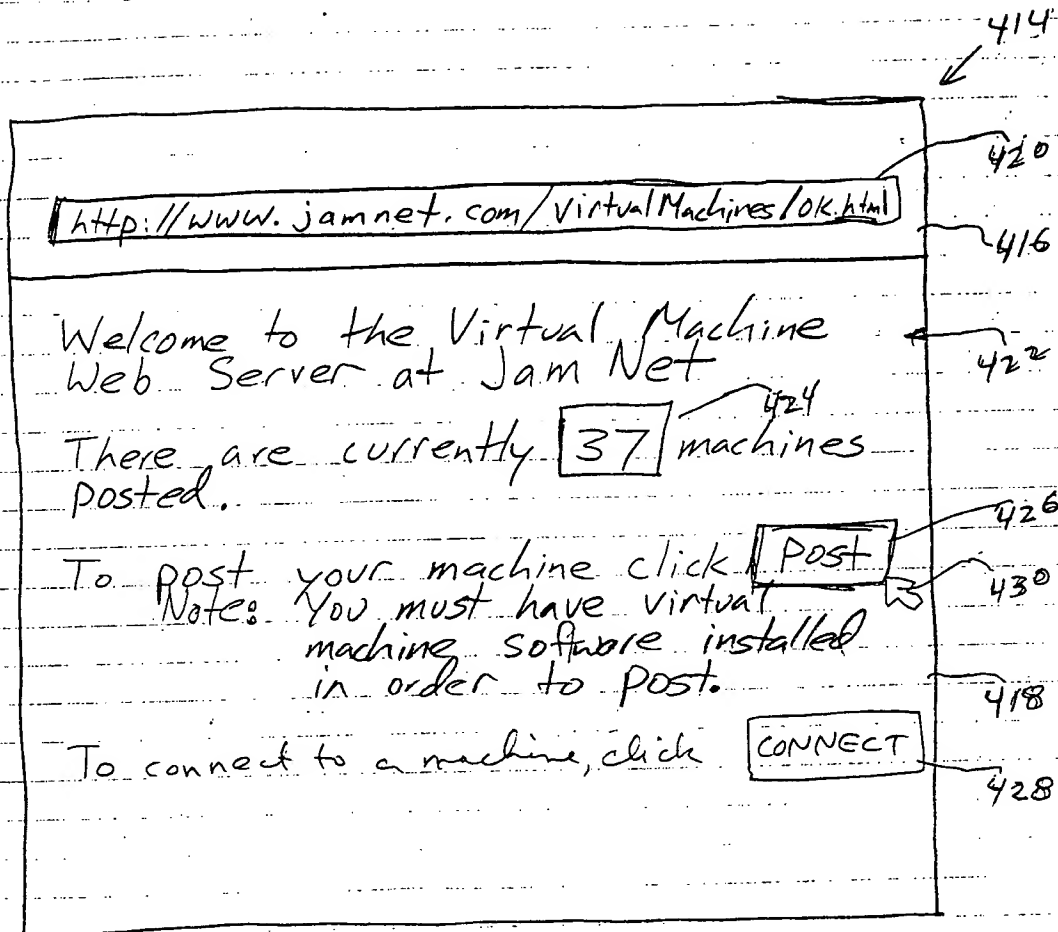 414
420
http://www.jamnet.com/VirtualMachines/OK.html
416
Welcome to the Virtual Machine
422
Web Server at Jam Net
424
There are currently 37 machines
posted.
426
To post your machine click Post
430
Note: You must have virtual
machine software installed
in order to post.
418
To connect to a machine, click CONNECT
428